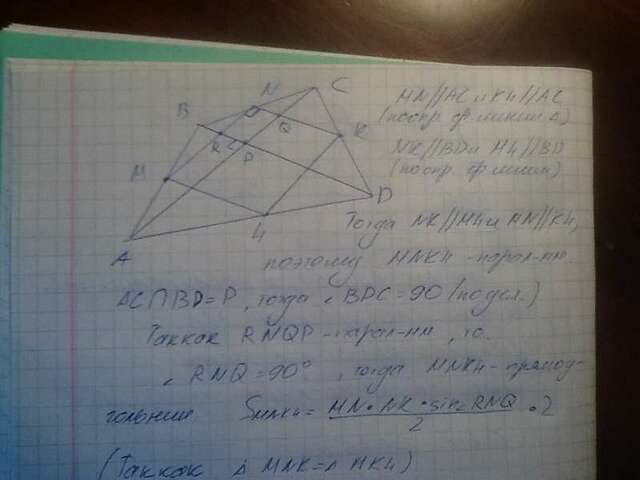 N
C
B
Q
K
R
P
M
D
4
A
MN//AC и K4//AC
(по опр. ср. линии Δ)
NK//BD и M4//BD
(по опр. ср. линии)
Тогда NK//M4 и MN//K4,
поэтому MNK4 - парал-мм.
AC∩BD=P, тогда ∠BPC=90 (по усл.)
Так как RNQP - парал-мм, то
∠RNQ=90°, тогда MNK4 - прямоу-
гольник SMNK4 = MN·NK·sin∠RNQ / 2 · 2
(Так как Δ MNK = Δ MK4)